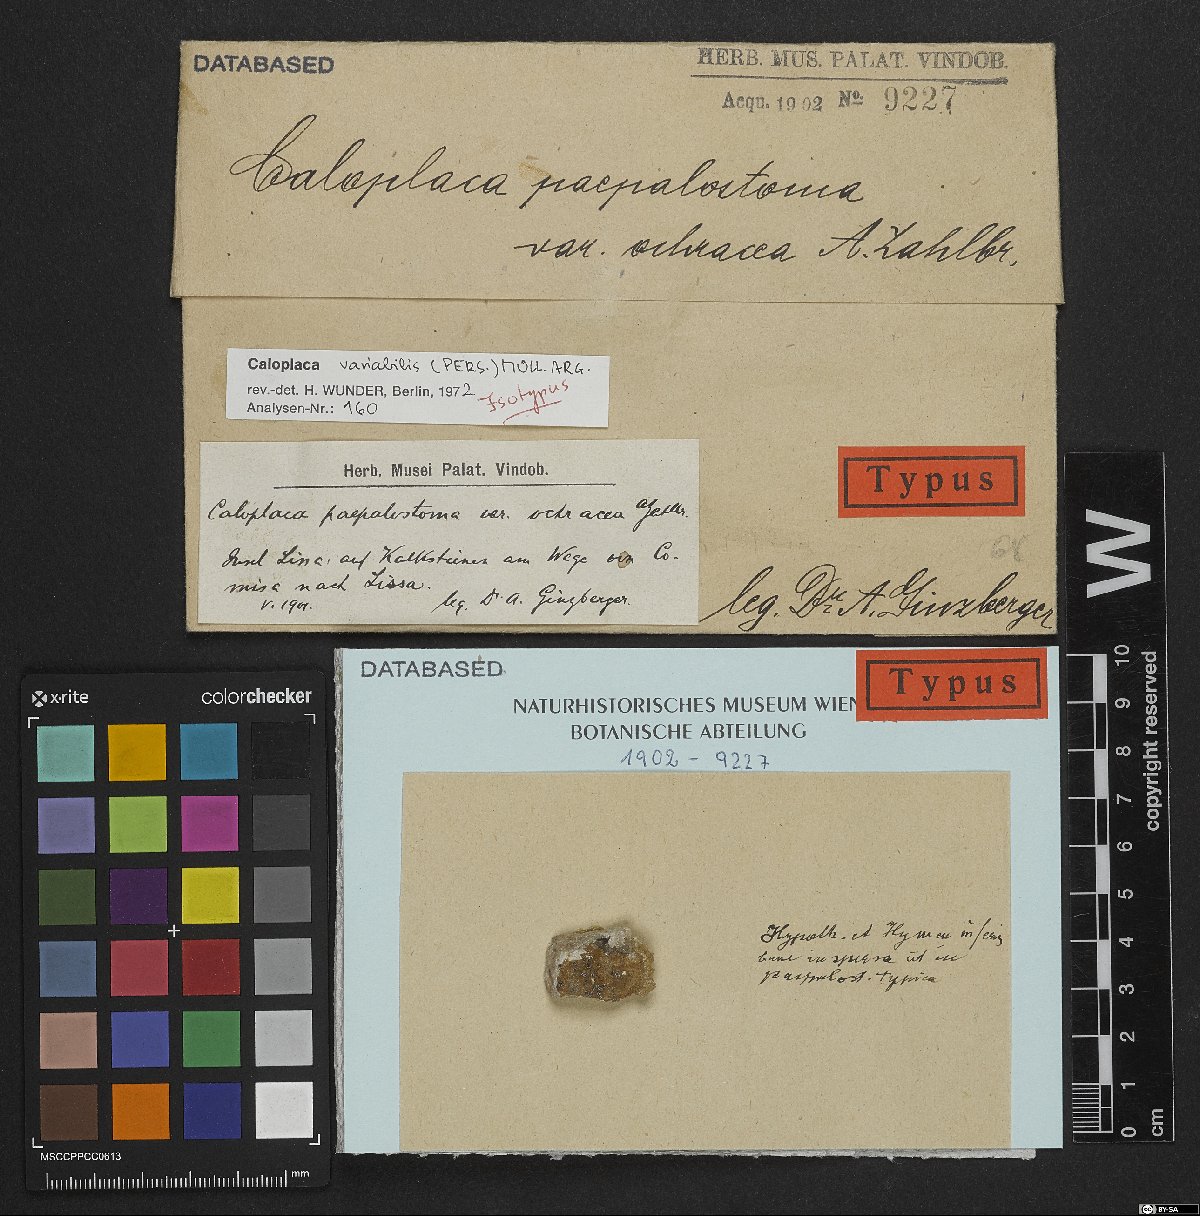 DATABASED
HERB. MUS. PALAT. VINDOB.
Acqu. 1902 No. 9227
Caloplaca paepalostoma
var. ochracea A. Zahlbr.
Caloplaca variabilis (PERS.) MÜLL. ARG.
rev.-det. H. WUNDER, Berlin, 1972
Isotypus
Analysen-Nr.: 160
Herb. Musei Palat. Vindob.
Caloplaca paepalostoma var. ochracea
Insel Lissa: auf Kalksteinen am Wege von Co-
misa nach Lissa.
V. 1901. leg. Dr. A. Ginzberger.
Typus
68
leg. Dr. A. Ginzberger
DATABASED
Typus
NATURHISTORISCHES MUSEUM WIEN
BOTANISCHE ABTEILUNG
1902 - 9227
Hypoth. et Hymen
ut in
paepalost. typica
x·rite colorchecker
MSCCPPCC0613
mm
W
10 9 8 7 6 5 4 3 2 1 0 cm
copyright reserved
cc BY-SA